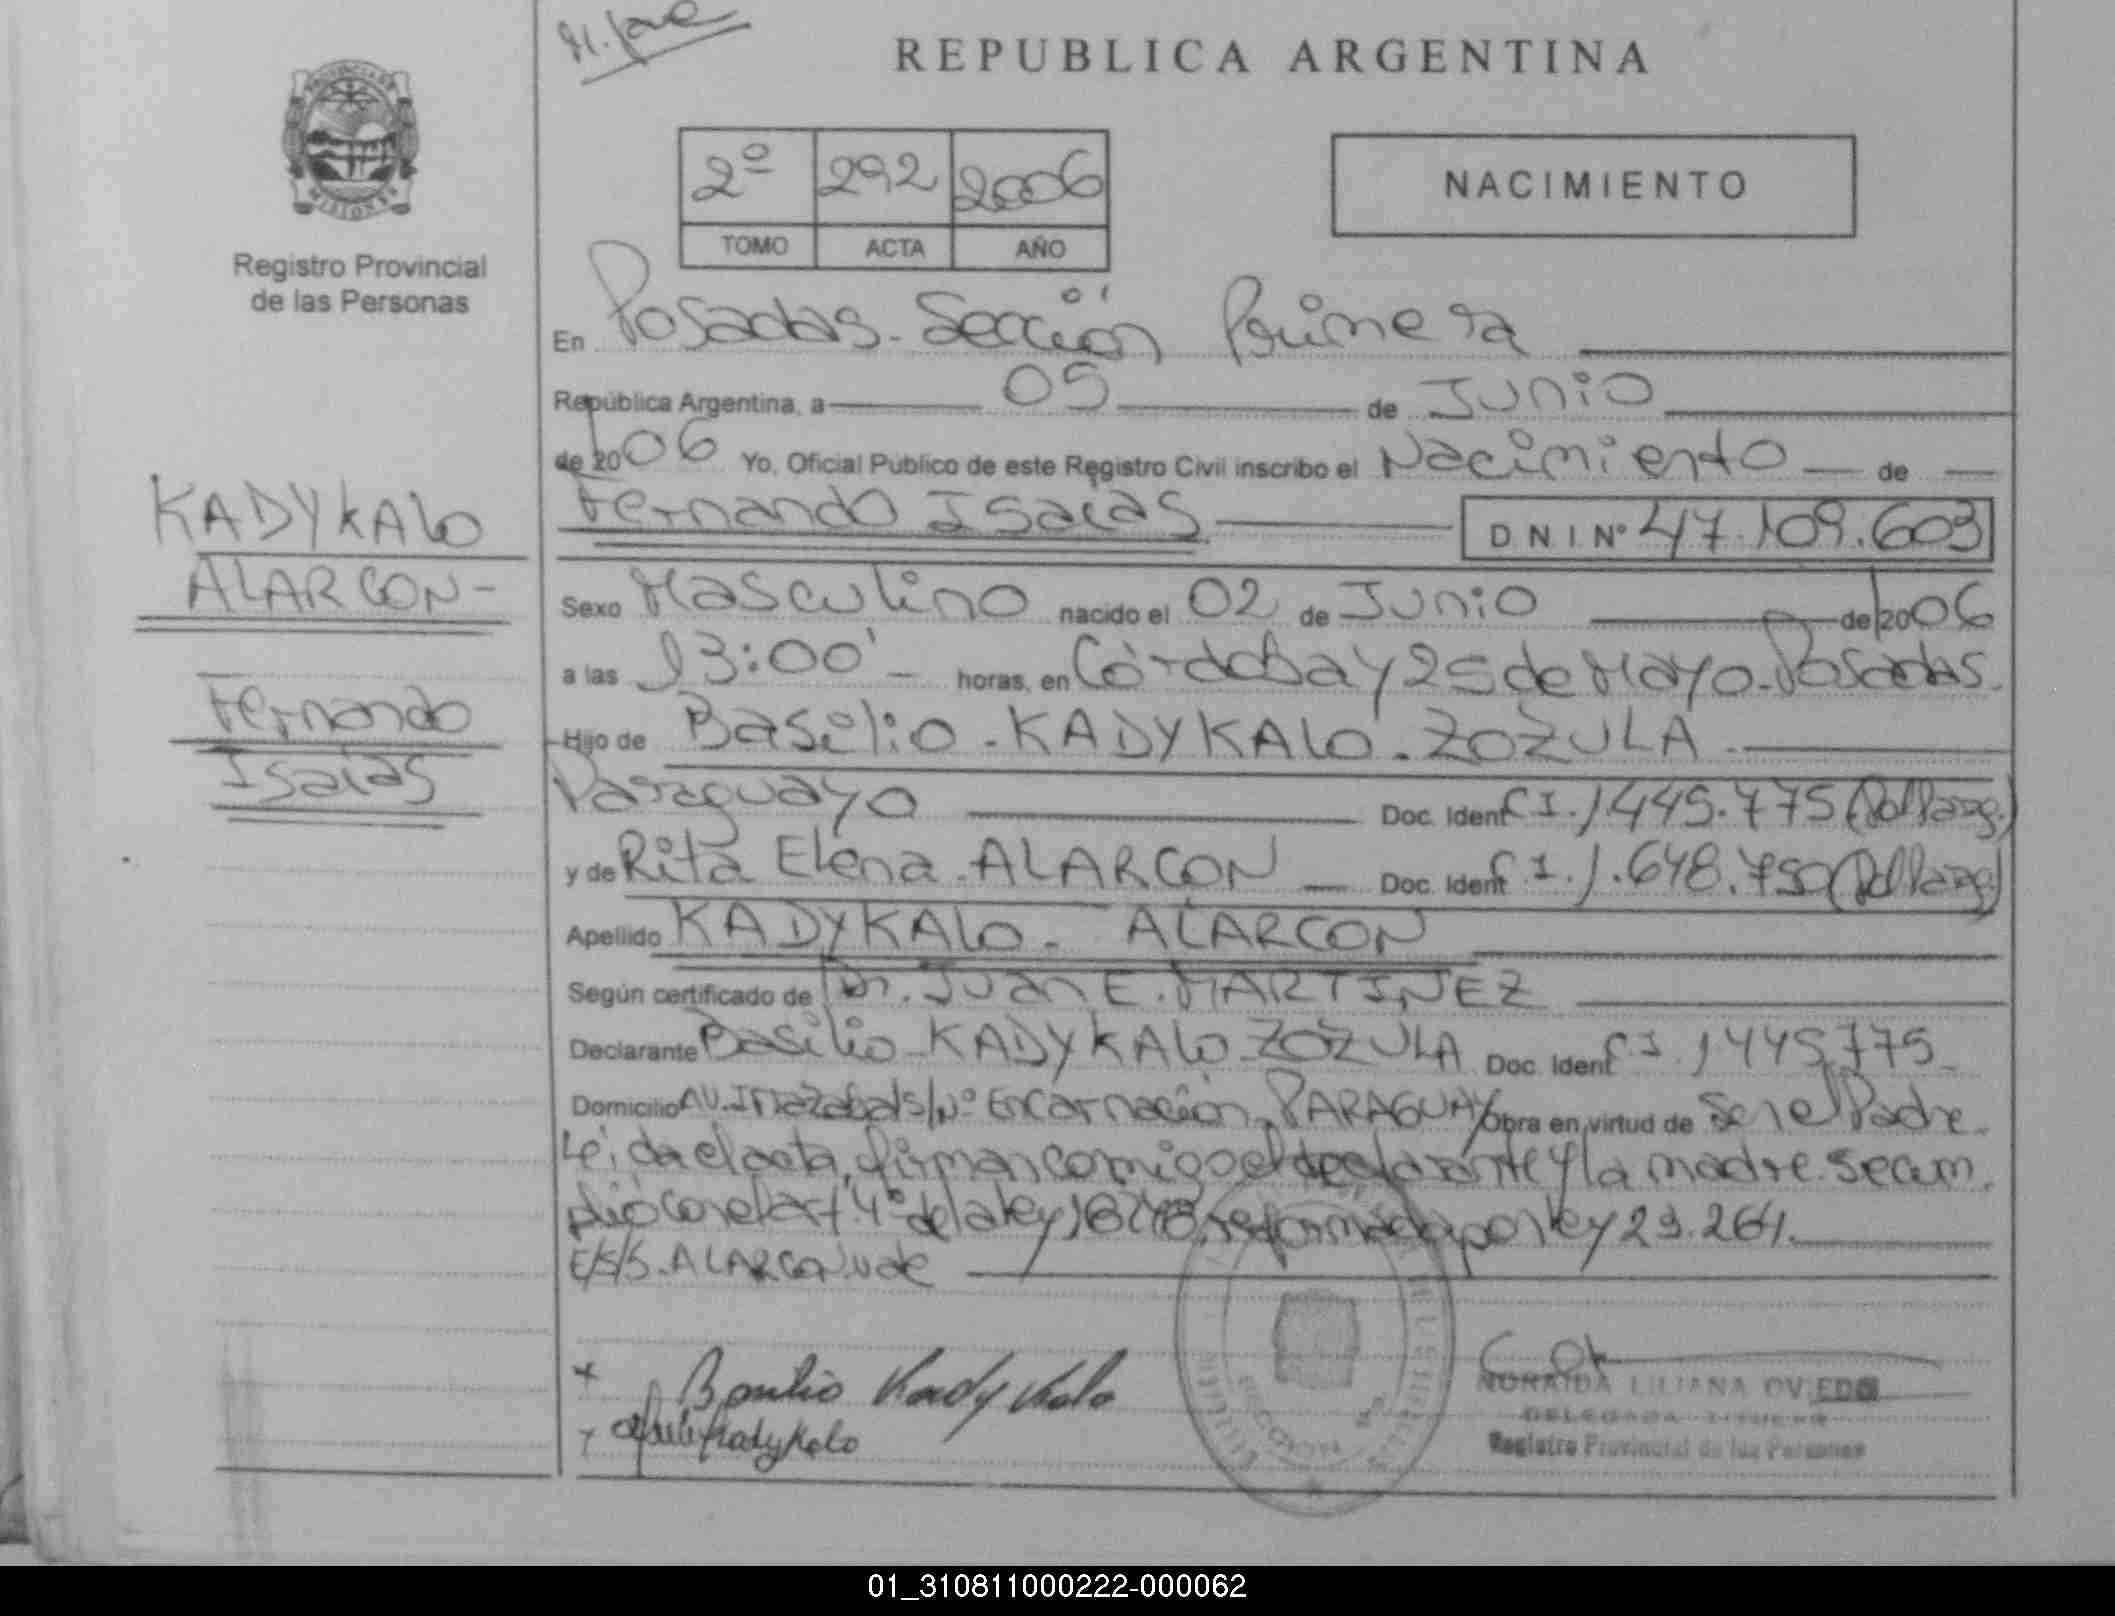 REPUBLICA ARGENTINA
PROVINCIA DE
MISIONES
Registro Provincial
de las Personas
2º 292 2006
TOMO ACTA AÑO
NACIMIENTO
En Posadas - Sección Primera
República Argentina, a 05 de Junio
de 2006 Yo, Oficial Público de este Registro Civil inscribo el Nacimiento de
Fernando Isaías D N I Nº 47.109.603
KADYKALO
ALARCON-
Fernando
Isaías
Sexo Masculino nacido el 02 de Junio de 2006
a las 13:00' - horas, en Córdoba y 25 de Mayo - Posadas.
Hijo de Basilio - KADYKALO - ZOZULA -
Paraguayo Doc. Ident C I. 1.445.775 (Pol Parag.)
y de Rita Elena - ALARCON Doc. Ident C.I. 1.648.750 (Pol Parag.)
Apellido KADYKALO - ALARCON
Según certificado de Dr. Juan E. MARTINEZ
Declarante Basilio - KADYKALO ZOZULA Doc. Ident C.I. 1445775
Domicilio AV. Irrazabal S/Nº Encarnación, PARAGUAY Obra en virtud de Ser el Padre.
Leída el acta, firman comigo el declarante y la madre. Se cum
plió con el art. 4º de la ley 18248, reformada por ley 23.264.
E/S/S. ALARCON. vale
Basilio Kadykalo
Kadykalo
NORAIDA LILIANA OVIEDO
DELEGADA TITULAR
Registro Provincial de las Personas
01_310811000222-000062